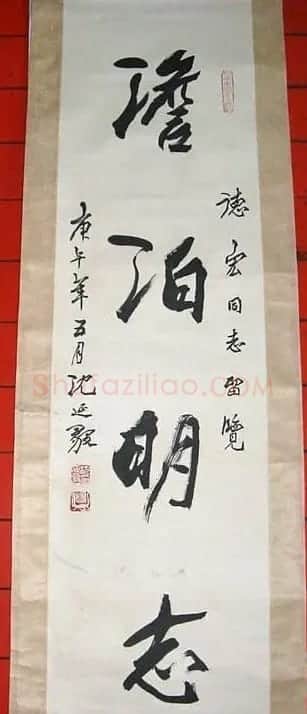 德宏同志留覽
澹泊明志
庚午年五月沈延毅
Shufaziliao.COM